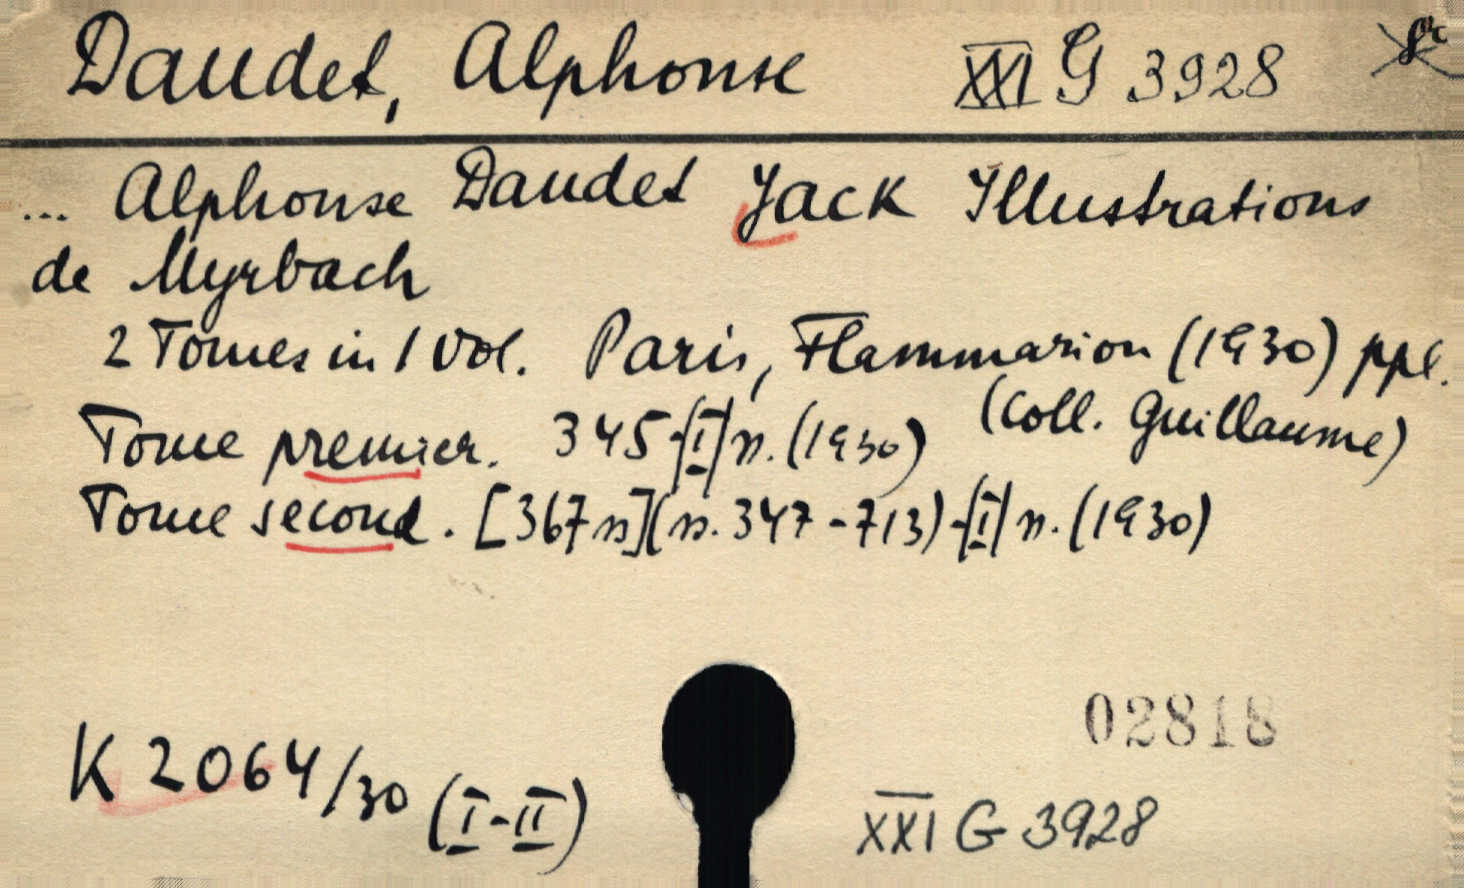 Daudet, Alphonse XXI G 3928
... Alphonse Daudet Jack Illustrations
de Myrbach
2 Tomes in 1 vol. Paris, Flammarion (1930) ppl.
(Coll. Guillaume)
Tome premier. 345-[I] s. (1930)
Tome second. [367 s] (s. 347-713)-[I] s. (1930)
02818
K 2064/30 (I-II)
XXI G 3928